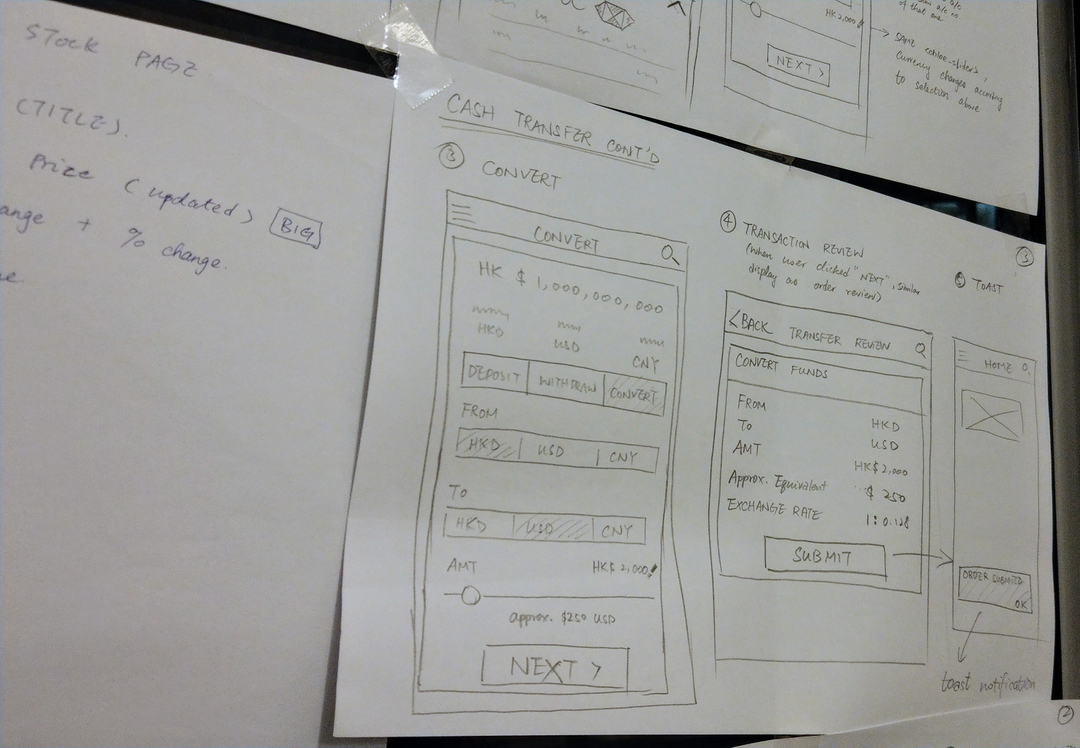 STOCK PAGE
(TITLE).
Prize (updated) BIG
ange + % change.
HK 2,000
NEXT >
currency changes according
to selection above
CASH TRANSFER CONT'D
③ CONVERT
CONVERT
HK $ 1,000,000,000
HKD USD CNY
DEPOSIT WITHDRAW CONVERT
FROM
HKD USD CNY
To
HKD USD CNY
AMT HK$ 2,000
approx. $250 USD
NEXT >
④ TRANSACTION REVIEW
(when user clicked "NEXT", similar
display as order review)
< BACK TRANSFER REVIEW
CONVERT FUNDS
FROM HKD
To USD
AMT HK$ 2,000
Approx. Equivalent $ 250
EXCHANGE RATE 1:0.128
SUBMIT
③
⑤ TOAST
HOME
ORDER SUBMITTED
OK
toast notification
②